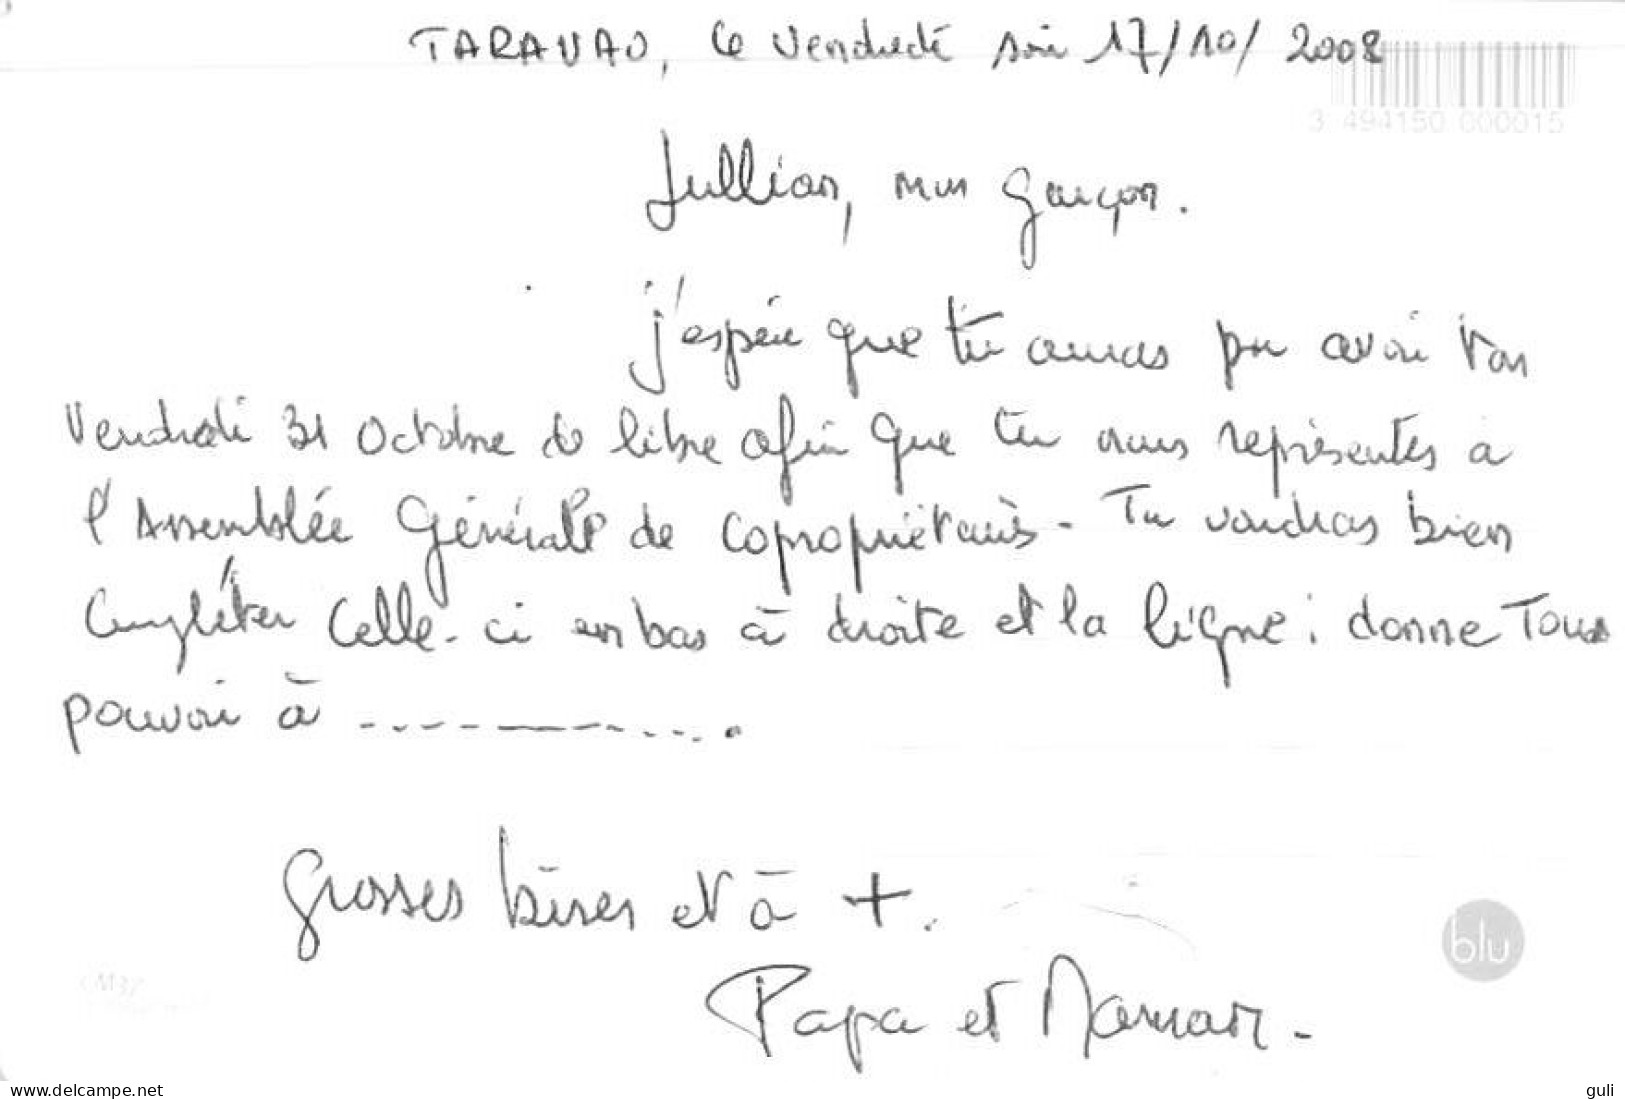 TARAVAO, le Vendredi soir 17/10/2008
3 494150 000015
Jullian, mon garçon.
j'espère que tu auras pu avoir ton
Vendredi 31 Octobre de libre afin que tu nous représentes à
l'Assemblée Générale de copropriétaires - Tu voudras bien
Compléter Celle-ci en bas à droite et la ligne : donne Tous
pouvoir à ------------.
Grosses bises et à +.
blu
Papa et Maman -
www.delcampe.net
guli